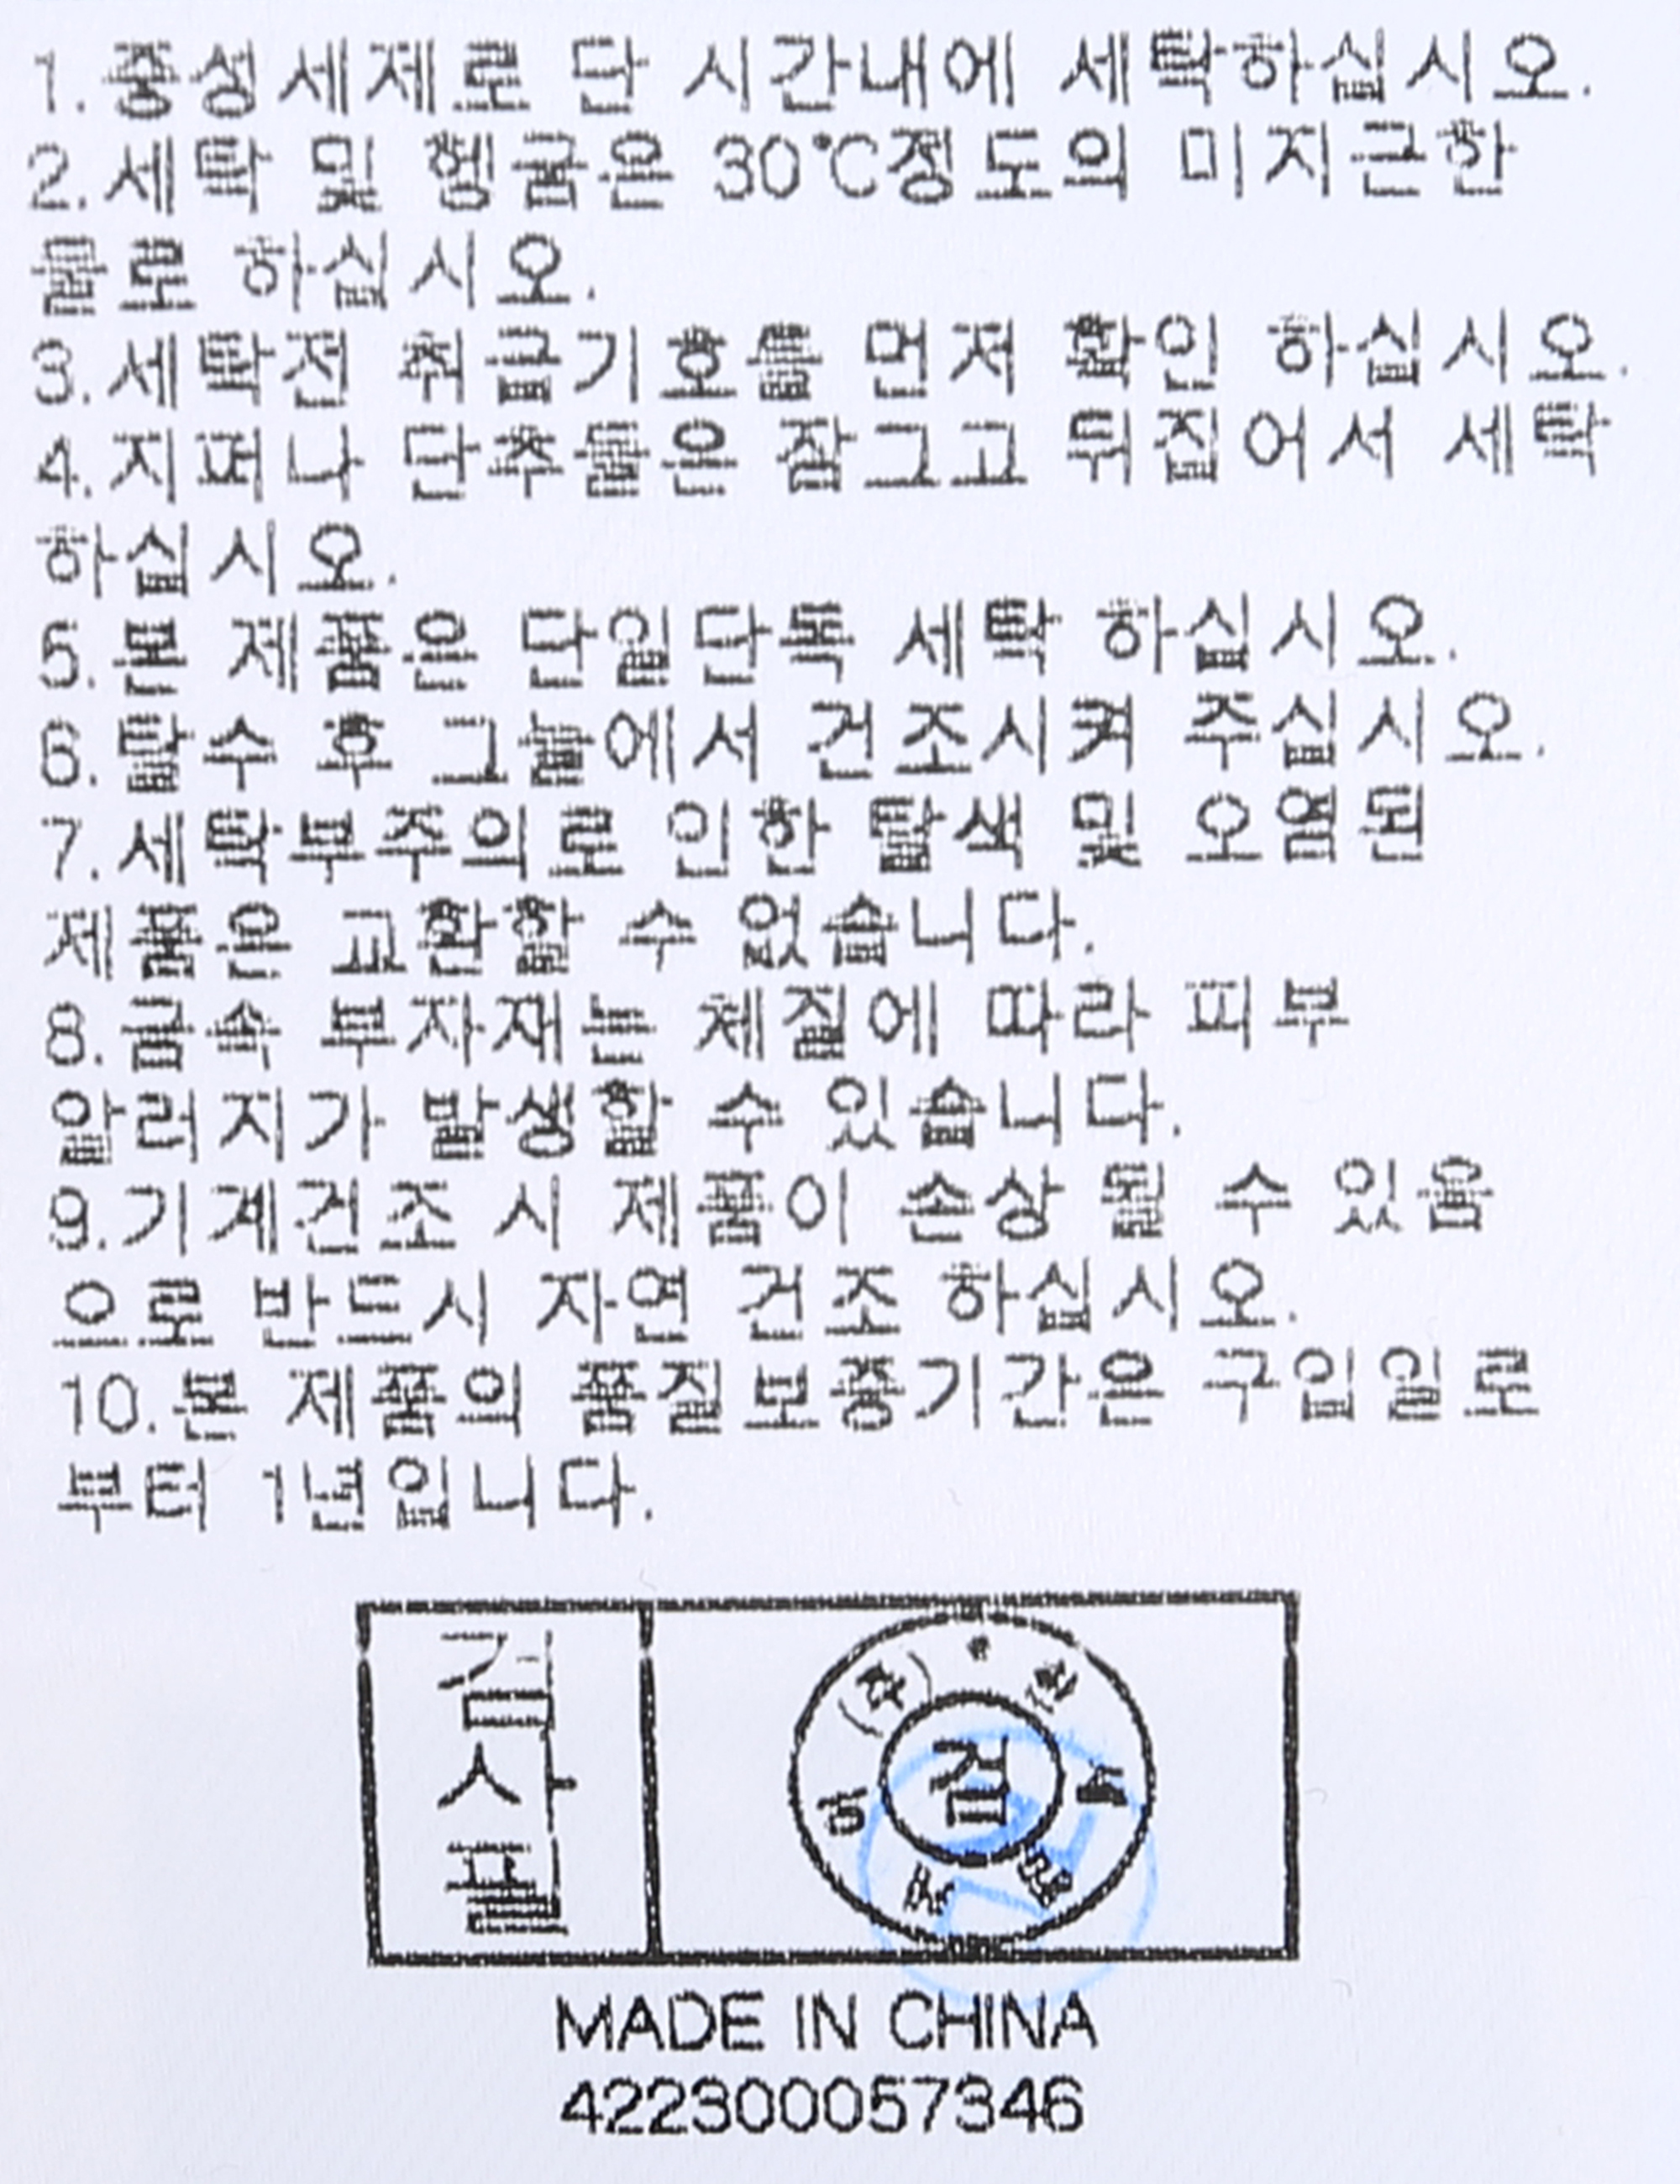 1.중성세제로 단 시간내에 세탁하십시오.
2.세탁 및 헹굼은 30℃정도의 미지근한
물로 하십시오.
3.세탁전 취급기호를 먼저 확인 하십시오.
4.지퍼나 단추들은 잠그고 뒤집어서 세탁
하십시오.
5.본 제품은 단일단독 세탁 하십시오.
6.탈수 후 그늘에서 건조시켜 주십시오.
7.세탁부주의로 인한 탈색 및 오염된
제품은 교환할 수 없습니다.
8.금속 부자재는 체질에 따라 피부
알러지가 발생할 수 있습니다.
9.기계건조 시 제품이 손상 될 수 있음
으로 반드시 자연 건조 하십시오.
10.본 제품의 품질보증기간은 구입일로
부터 1년입니다.
검사필
검
MADE IN CHINA
422300057346